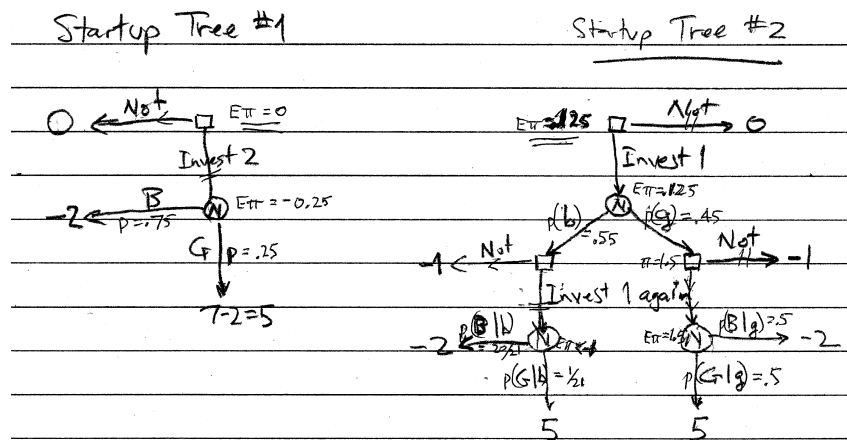 Startup Tree #1
Not
Eπ=0
Invest 2
B
N
Eπ=-0.25
-2
p=.75
G
p=.25
7-2=5
Startup Tree #2
Eπ=.125
Not
0
Invest 1
Eπ=.125
N
p(b)
=.55
p(g)=.45
-1
Not
π=1.5
Not
-1
Invest 1 again
p(B|b)
=20/21
-2
N
Eπ<-1
p(G|b)=1/21
5
Eπ=1.5
N
p(B|g)=.5
-2
p(G|g)=.5
5